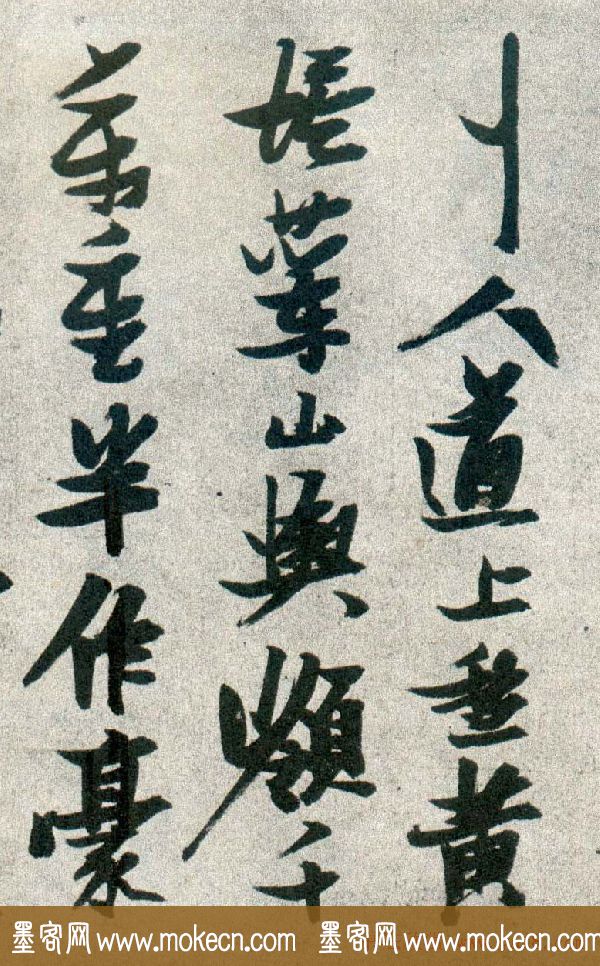 人道上黄
山與嶺千
萬重半作豪
墨客网 www.mokecn.com 墨客网 www.mokecn.com